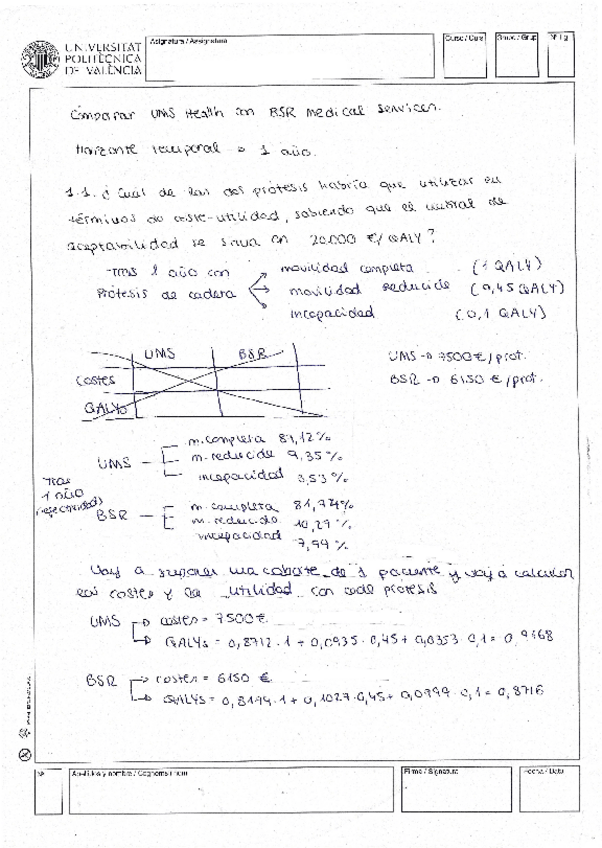 UNIVERSITAT
POLITÈCNICA
DE VALÈNCIA
Asignatura / Assignatura
Curso / Curs
Grupo / Grup
Comparar UMS Health con BSR Medical Services.
Horizonte temporal → 1 año.
1.1. ¿Cuál de las dos prótesis habría que utilizar en
términos de coste-utilidad, sabiendo que el umbral de
aceptabilidad se sitúa en 20.000 €/QALY?
Tras 1 año con
prótesis de cadera
movilidad completa (1 QALY)
movilidad reducida (0,45 QALY)
incapacidad (0,1 QALY)
UMS BSR
costes
QALYs
UMS → 7500 €/prot.
BSR → 6150 €/prot.
Tras
1 año
(efectividad)
UMS
m. completa 87,12%
m. reducida 9,35%
incapacidad 3,53%
BSR
m. completa 81,74%
m. reducida 10,27%
incapacidad 7,99%
Voy a suponer una cohorte de 1 paciente y voy a calcular
los costes y la utilidad con cada prótesis
UMS → costes = 7500 €
→ QALYs = 0,8712 · 1 + 0,0935 · 0,45 + 0,0353 · 0,1 = 0,9168
BSR → costes = 6150 €
→ QALYs = 0,8174 · 1 + 0,1027 · 0,45 + 0,0799 · 0,1 = 0,8716
Apellidos y nombre / Cognoms i nom
Firma / Signatura
Fecha / Data